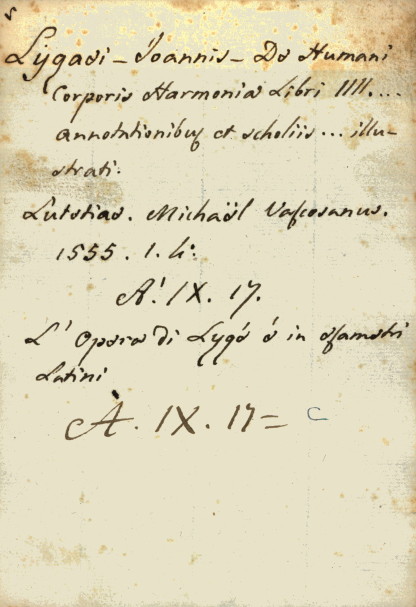 Lÿgaei - Joannis - De Humani
Corporis Harmonia Libri IIII....
annotationibus et scholiis... illu-
strati.
Lutetiae. Michaël Vascosanus.
1555. 1. 4:
A. IX. 17.
L' Opera di Lygé é in esametri
Latini
A. IX. 17= C